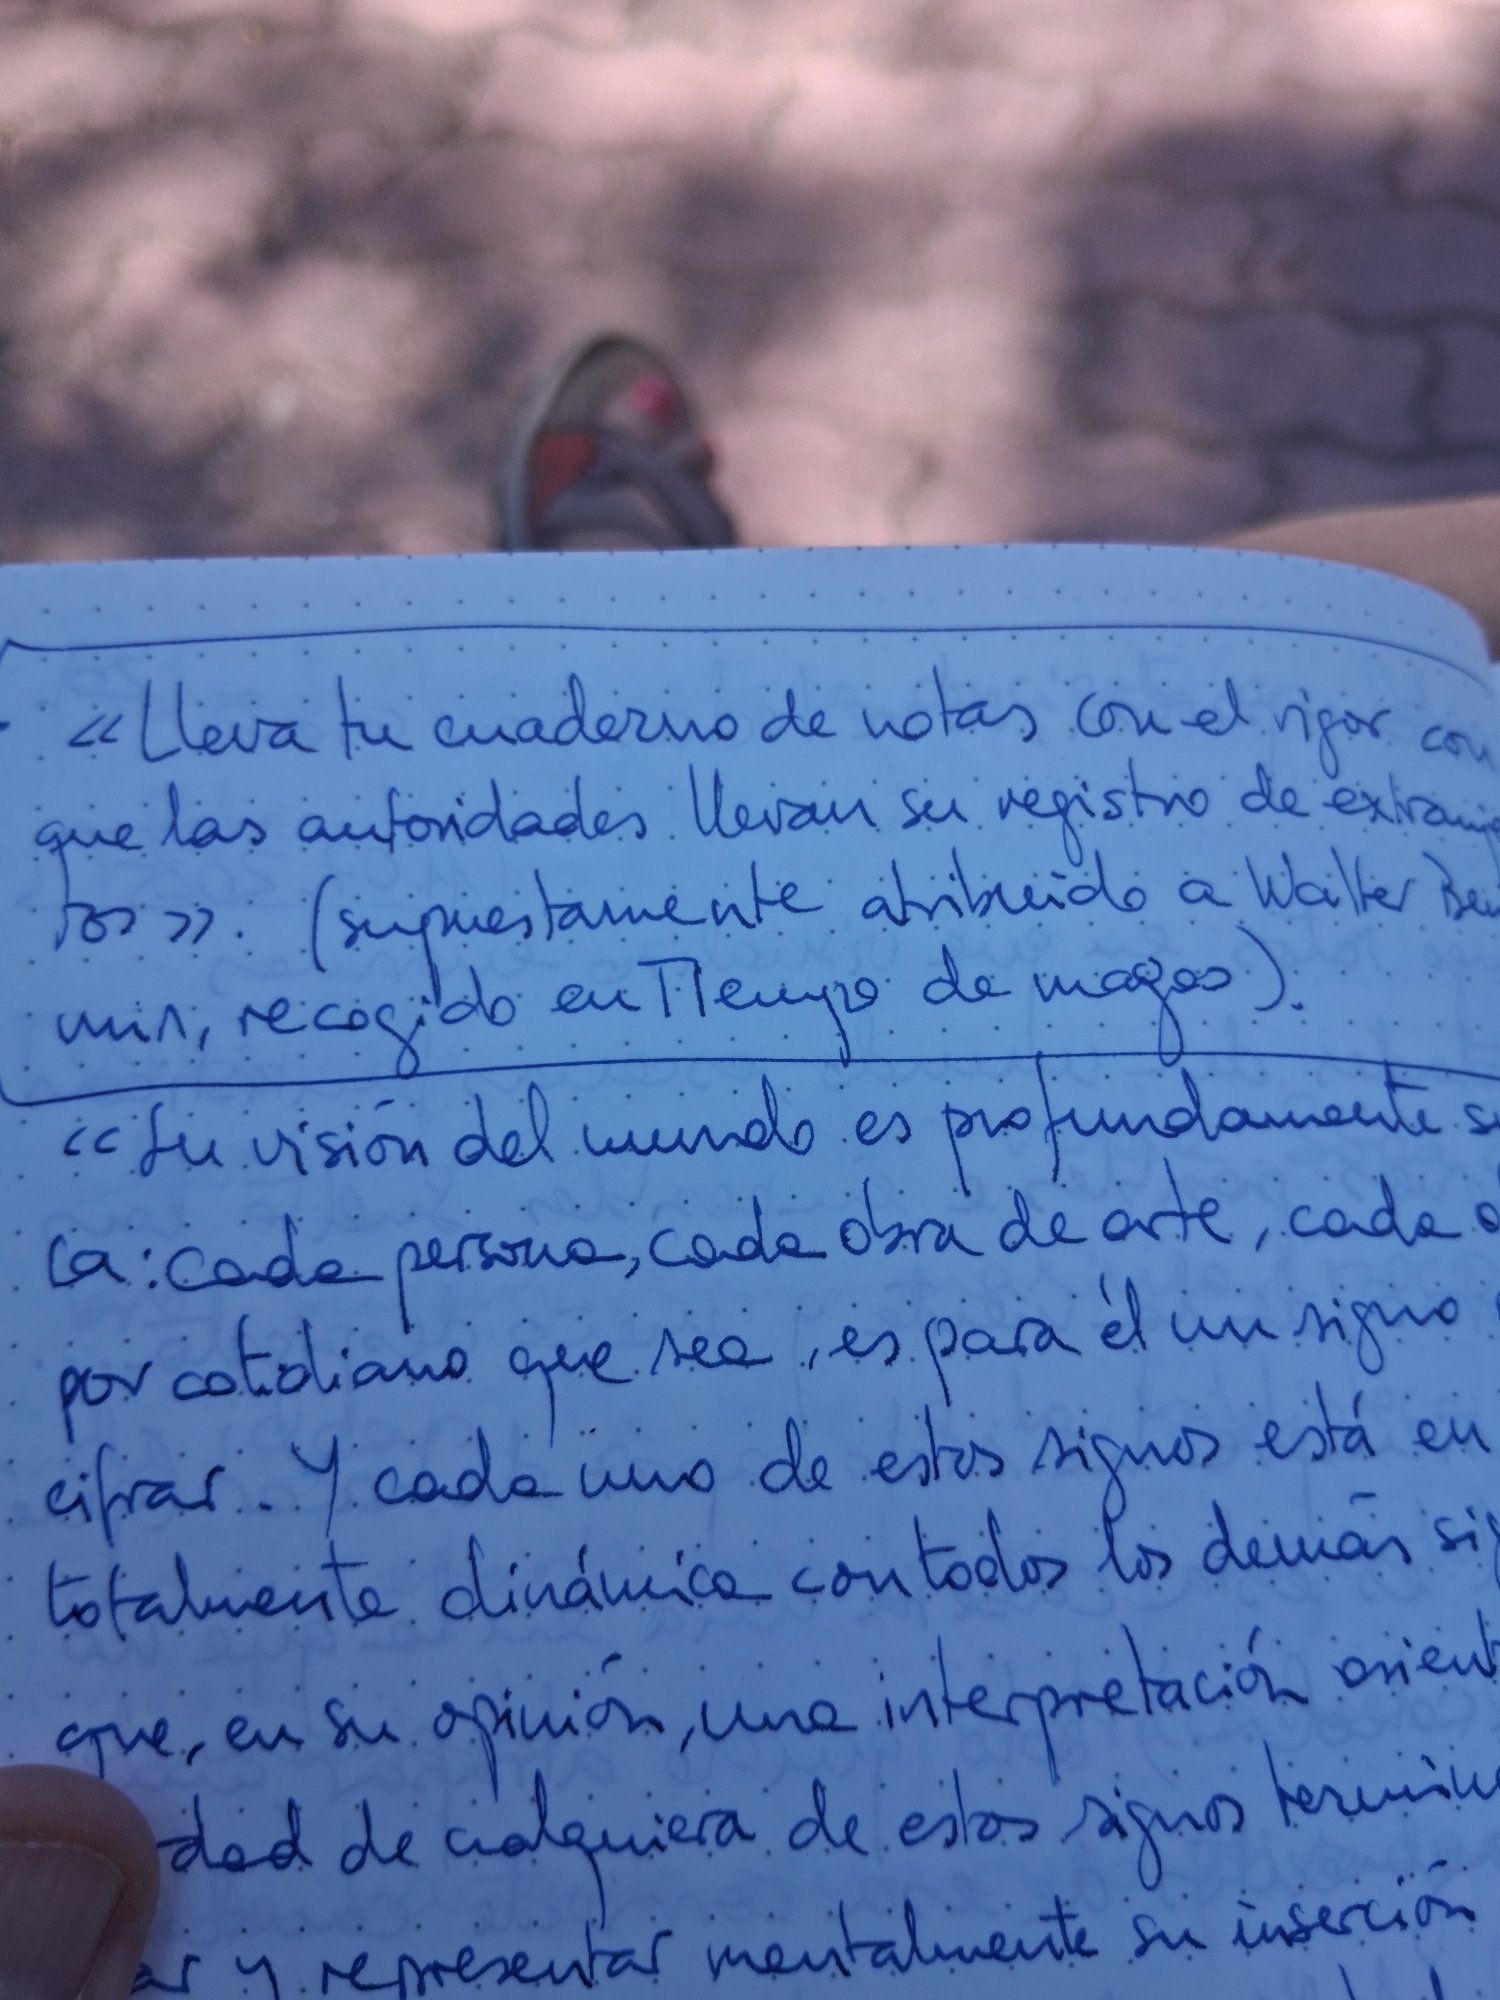 «Lleva tu cuaderno de notas con el rigor con
que las autoridades llevan su registro de extranje
ros». (supuestamente atribuido a Walter Ben
min, recogido en Tiempo de magos).
"Su visión del mundo es profundamente s
ca: cada persona, cada obra de arte, cada o
por cotidiano que sea, es para él un signo
cifrar. Y cada uno de estos signos está en
totalmente dinámica con todos los demás sig
que, en su opinión, una interpretación orient
dad de cualquiera de estos signos termin
ar y representar mentalmente su inserción